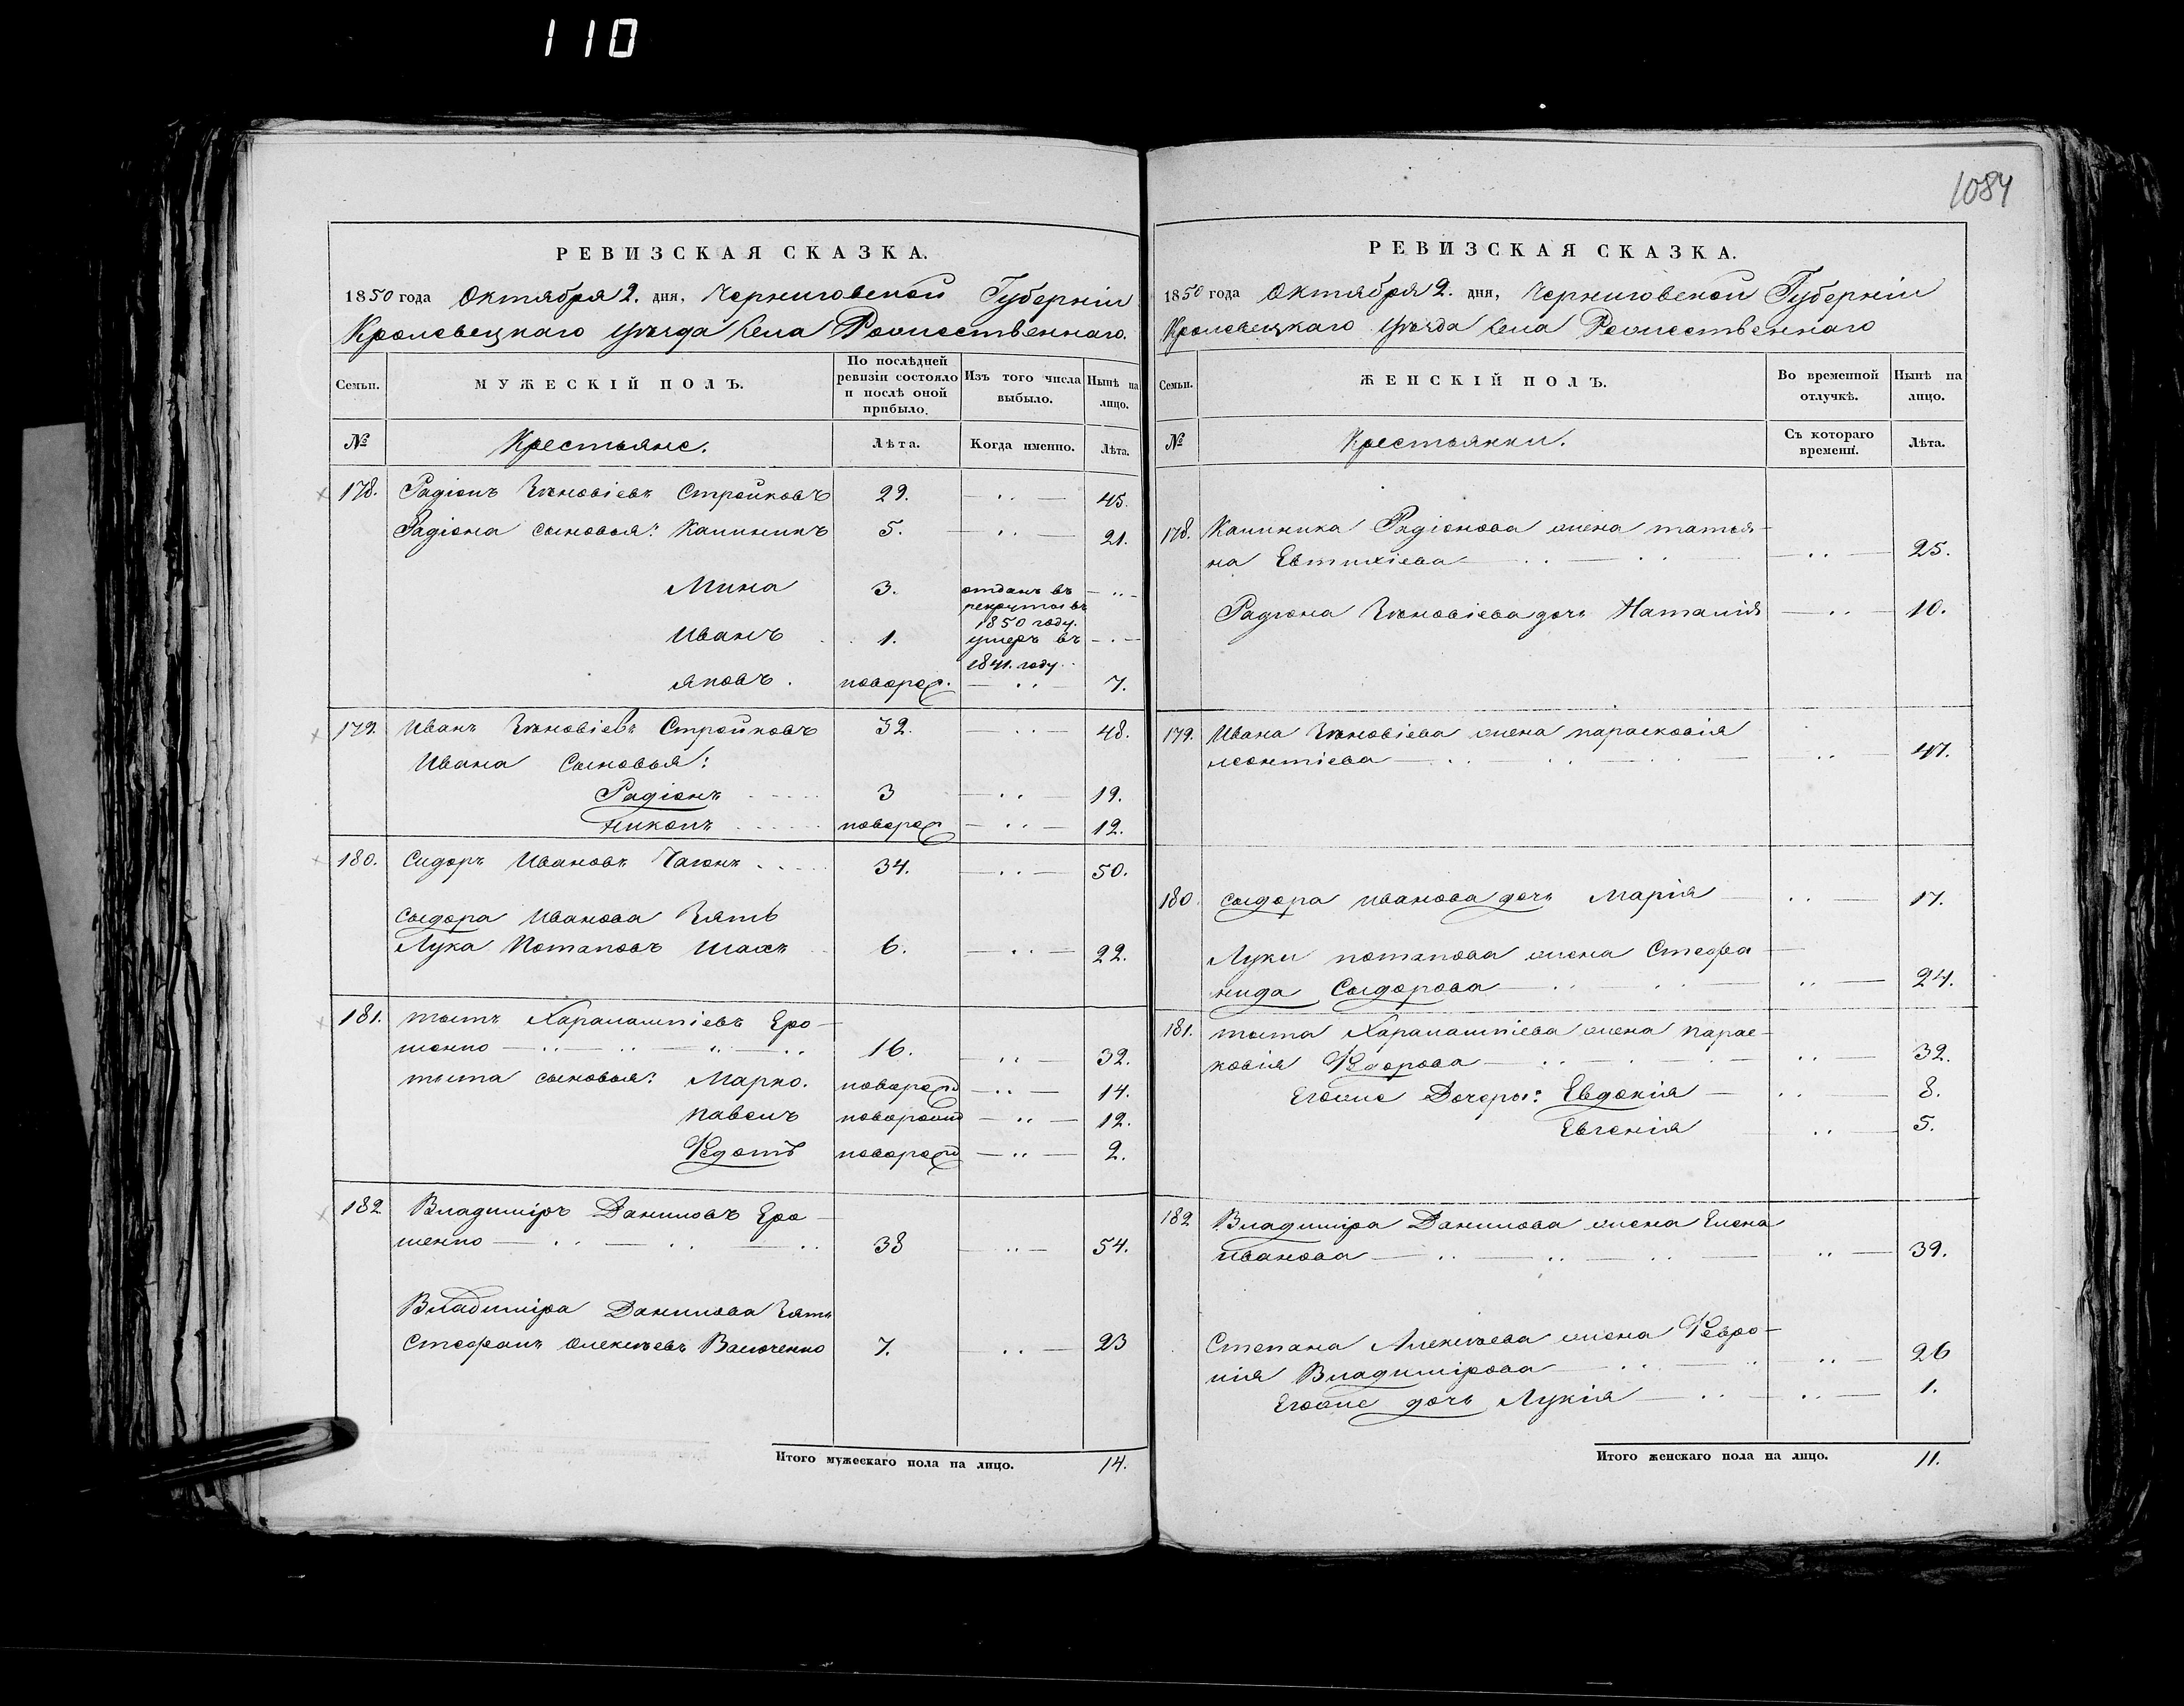 110
1084
РЕВИЗСКАЯ СКАЗКА.
1850 года Октября 2. дня, Черниговской Губерніи
Кролевецкаго уѣзда села Рожественнаго.
Семьи.
МУЖЕСКІЙ ПОЛЪ.
По послѣдней ревизіи состояло и послѣ оной прибыло.
Изъ того числа выбыло.
Нынѣ на лицо.
№
Крестьяне.
Лѣта.
Когда именно.
Лѣта.
178. Радіонъ Зѣновіевъ Стройковъ 29. 45.
Радіона сыновья: Калиникъ 5. 21.
Мина 3. отданъ въ рекруты въ 1850 году.
Иванъ 1. умеръ въ 1841. году
Яковъ. новорож. 7.
179. Иванъ Зѣновіевъ Стройковъ 32. 48.
Ивана Сыновья:
Радіонъ 3 19.
Никонъ новорож 12.
180. Сидоръ Ивановъ 34. 50.
Сыдора Иванова Зять
Лука Потаповъ 6. 22.
181. тытъ Харалампіевъ Еро-
шенко 16. 32.
тыта сыновья: Марко. новорожд 14.
павелъ новорожд 12.
Ѳедотъ новорожд 2.
182 Владиміръ Даниловъ Еро-
шенко 38 54.
Владиміра Данилова Зять
Стефанъ Олексѣевъ 7. 23
Итого мужескаго пола на лицо. 14.
РЕВИЗСКАЯ СКАЗКА.
1850 года Октября 2. дня, Черниговской Губерніи
Кролевецкаго уѣзда села Рожественнаго
Семьи.
ЖЕНСКІЙ ПОЛЪ.
Во временной отлучкѣ.
Нынѣ на лицо.
№
Крестьянки.
Съ котораго времени.
Лѣта.
178. Калиника Радіонова жена татья-
на Евтихіева 25.
Радіона Зѣновіева дочь Наталія 10.
179. Ивана Зѣновіева жена парасковія
леонтіева 47.
180. Сыдора иванова дочь Марія 17.
Луки потапова жена Стефа-
нида Сыдорова 24.
181. тыта Харалампіева жена парас-
ковія Ѳедорова 32.
Егоже Дочеры: Евдокія 8.
Евгенія 5.
182 Владиміра Данилова жена Елена
иванова 39.
Степана Алексѣева жена Ѳевро-
нія Владимірова 26
Егоже дочь Лукія 1.
Итого женскаго пола на лицо. 11.